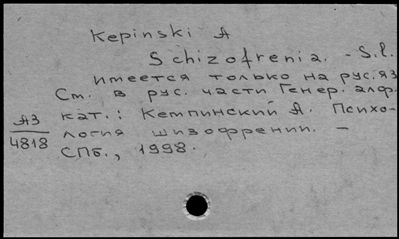 Kepinski A
Schizofrenia. - S.l.
имеется только на рус.яз
См. в рус. части Генер. алф.
АЗ кат.: Кемпинский А. Психо-
4818 логия шизофрении. –
СПб., 1998.